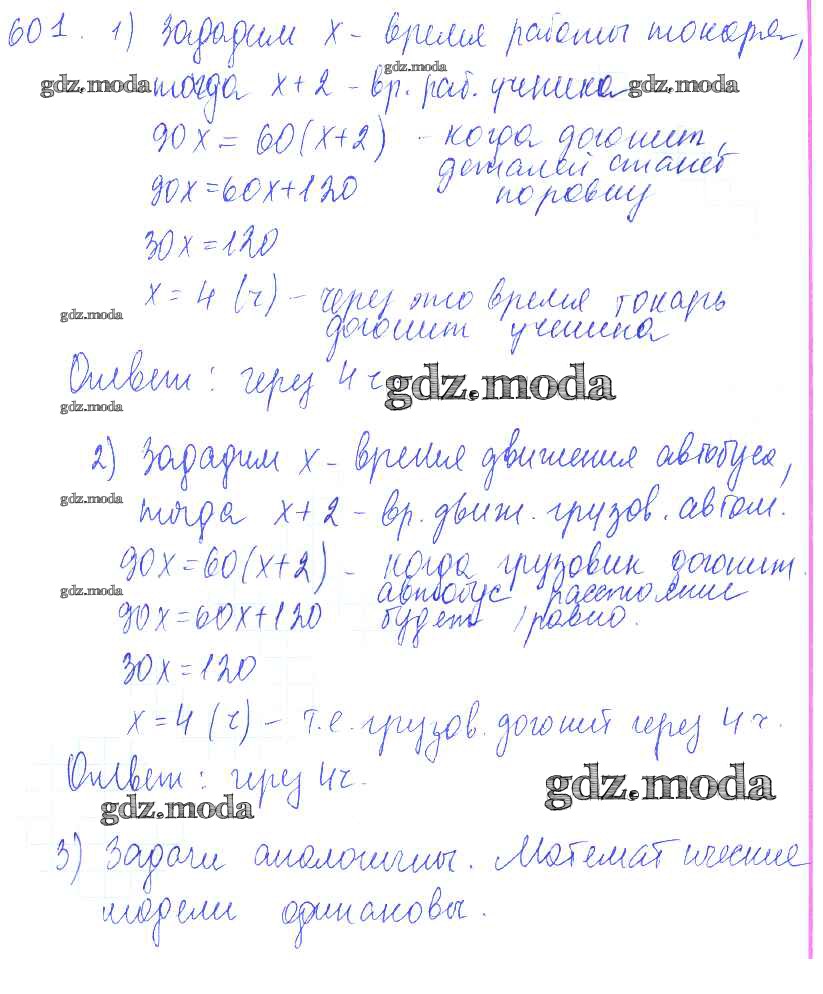 601. 1) Зададим x - время работы токаря,
gdz.moda
gdz.moda тогда x+2 - вр. раб. ученика gdz.moda
90x = 60(x+2) - когда догонит,
деталей станет
90x=60x+120 поровну
30x=120
x = 4 (ч) - через это время токарь
gdz.moda догонит ученика
Ответ: через 4 ч gdz.moda
gdz.moda
2) Зададим x - время движения автобуса,
gdz.moda тогда x+2 - вр. движ. грузов. автом.
90x=60(x+2) - когда грузовик догонит.
gdz.moda автобус расстояние
90x=60x+120 будет равно.
30x=120
x=4 (ч) - т.е. грузов. догонит через 4 ч.
Ответ: через 4ч. gdz.moda
gdz.moda
3) Задачи аналогичны. Математические
модели одинаковы.